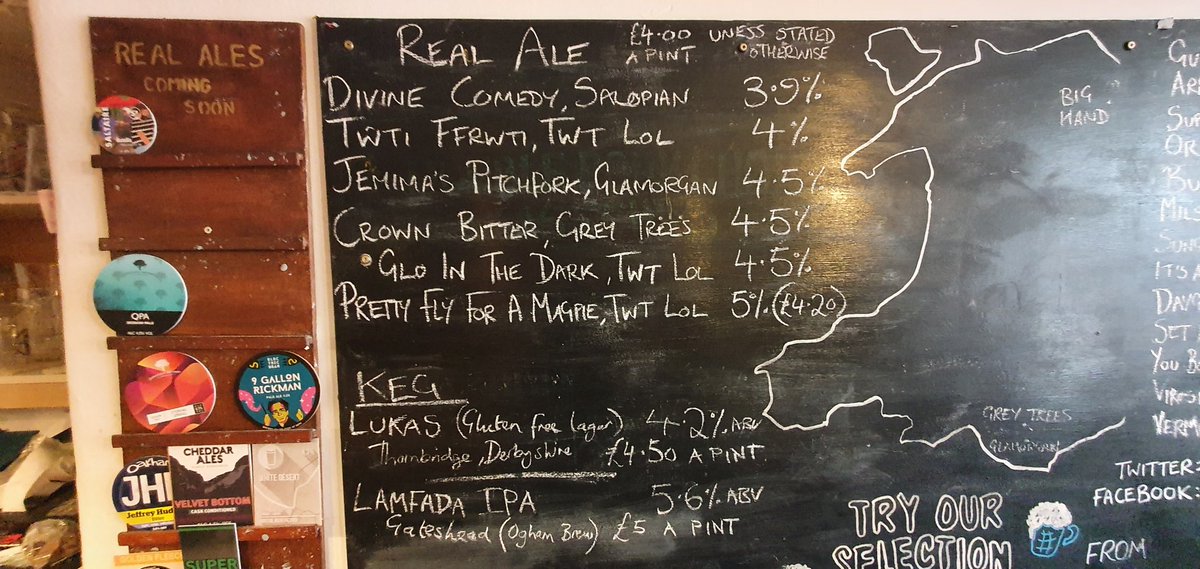 REAL ALES
COMING
SOON
SALTAIRE
QPA
9 GALLON
RICKMAN
PALE ALE
CHEDDAR
ALES
VELVET BOTTOM
CASK CONDITIONED
WHITE DESERT
JH
Jeffrey Hud
SUPER
REAL ALE £4.00 UNESS STATED
A PINT OTHERWISE
DIVINE COMEDY, SALOPIAN 3.9%
TŴTI FFRWTI, TWT LOL 4%
JEMIMA'S PITCHFORK, GLAMORGAN 4.5%
CROWN BITTER, GREY TREES 4.5%
GLO IN THE DARK, TWT LOL 4.5%
PRETTY FLY FOR A MAGPIE, TWT LOL 5% (£4.20)
KEG
LUKAS (Gluten free lager) 4.2% ABV
Thornbridge, Derbyshire £4.50 A PINT
LAMFADA IPA 5.6% ABV
Gateshead (Ogham Brew) £5 A PINT
BIG
HAND
GREY TREES
GLAMORGAN
TWITTER:
FACEBOOK:
TRY OUR
SELECTION
FROM
GU
AR
SUP
OR
BU
MIL
SUN
IT'S A
DAV
SET
YOU B
VIRUS
VERM